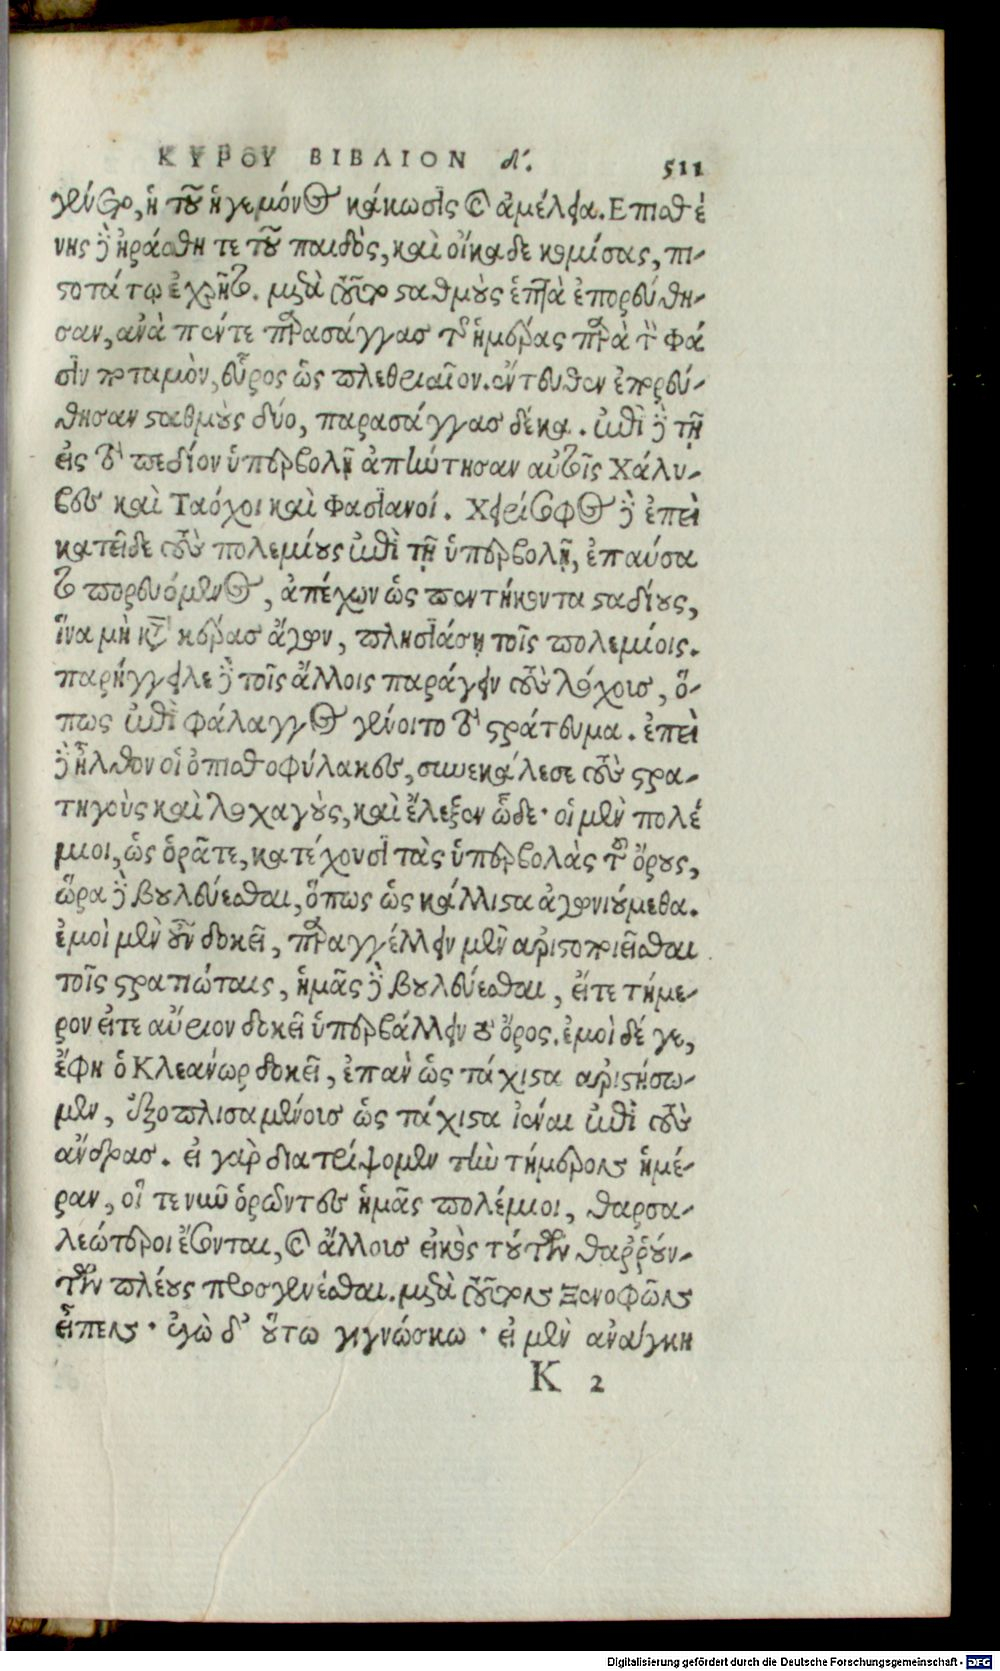 ΚΥΡΟΥ ΒΙΒΛΙΟΝ δ'. 511
γένετο, ἡ τοῦ ἡγεμόνος κάκωσις καὶ ἀμέλεια. Επισθέ
νης δὲ ἠράσθη τε τοῦ παιδὸς, καὶ οἴκαδε κομίσας, πι-
στοτάτῳ ἐχρῆτο. μετὰ τοῦτο σταθμοὺς ἑπτὰ ἐπορεύθη-
σαν, ἀνὰ πέντε παρασάγγας τῆς ἡμέρας παρὰ τὸν Φά
σιν ποταμὸν, εὖρος ὡς πλεθριαῖον. ἐντεῦθεν ἐπορεύ-
θησαν σταθμοὺς δύο, παρασάγγας δέκα. ἐπὶ δὲ τῇ
εἰς τὸ πεδίον ὑπερβολῇ ἀπήντησαν αὐτοῖς Χάλυ-
βες καὶ Ταόχοι καὶ Φασιανοί. Χειρίσοφος δὲ ἐπεὶ
κατεῖδε τοὺς πολεμίους ἐπὶ τῇ ὑπερβολῇ, ἐπαύσα
το πορευόμενος, ἀπέχων ὡς πεντήκοντα σταδίους,
ἵνα μὴ κατὰ κέρας ἄγων, πλησιάσῃ τοῖς πολεμίοις.
παρήγγειλε δὲ τοῖς ἄλλοις παράγειν τοὺς λόχους, ὅ-
πως ἐπὶ φάλαγγος γένοιτο τὸ στράτευμα. ἐπεὶ
δὲ ἦλθον οἱ ὀπισθοφύλακες, συνεκάλεσε τοὺς στρα-
τηγοὺς καὶ λοχαγοὺς, καὶ ἔλεξεν ὧδε· οἱ μὲν πολέ
μιοι, ὡς ὁρᾶτε, κατέχουσι τὰς ὑπερβολὰς τοῦ ὄρους,
ὥρα δὲ βουλεύεσθαι, ὅπως ὡς κάλλιστα ἀγωνιούμεθα.
ἐμοὶ μὲν οὖν δοκεῖ, παραγγέλλειν μὲν ἀριστοποιεῖσθαι
τοῖς στρατιώταις, ἡμᾶς δὲ βουλεύεσθαι, εἴτε τήμε-
ρον εἴτε αὔριον δοκεῖ ὑπερβάλλειν τὸ ὄρος. ἐμοὶ δέ γε,
ἔφη ὁ Κλεάνωρ δοκεῖ, ἐπὰν ὡς τάχιστα ἀριστήσω-
μεν, ἐξοπλισαμένοις ὡς τάχιστα ἰέναι ἐπὶ τοὺς
ἄνδρας. εἰ γὰρ διατρίψομεν τὴν τήμερον ἡμέ-
ραν, οἵ τε νῦν ὁρῶντες ἡμᾶς πολέμιοι, θαρσα-
λεώτεροι ἔσονται, καὶ ἄλλους εἰκὸς τούτων θαῤῥούν-
των πλείους προσγενέσθαι. μετὰ τοῦτον Ξενοφῶν
εἶπεν· ἐγὼ δ' οὕτω γιγνώσκω· εἰ μὲν ἀνάγκη
K 2
Digitalisierung gefördert durch die Deutsche Forschungsgemeinschaft - DFG